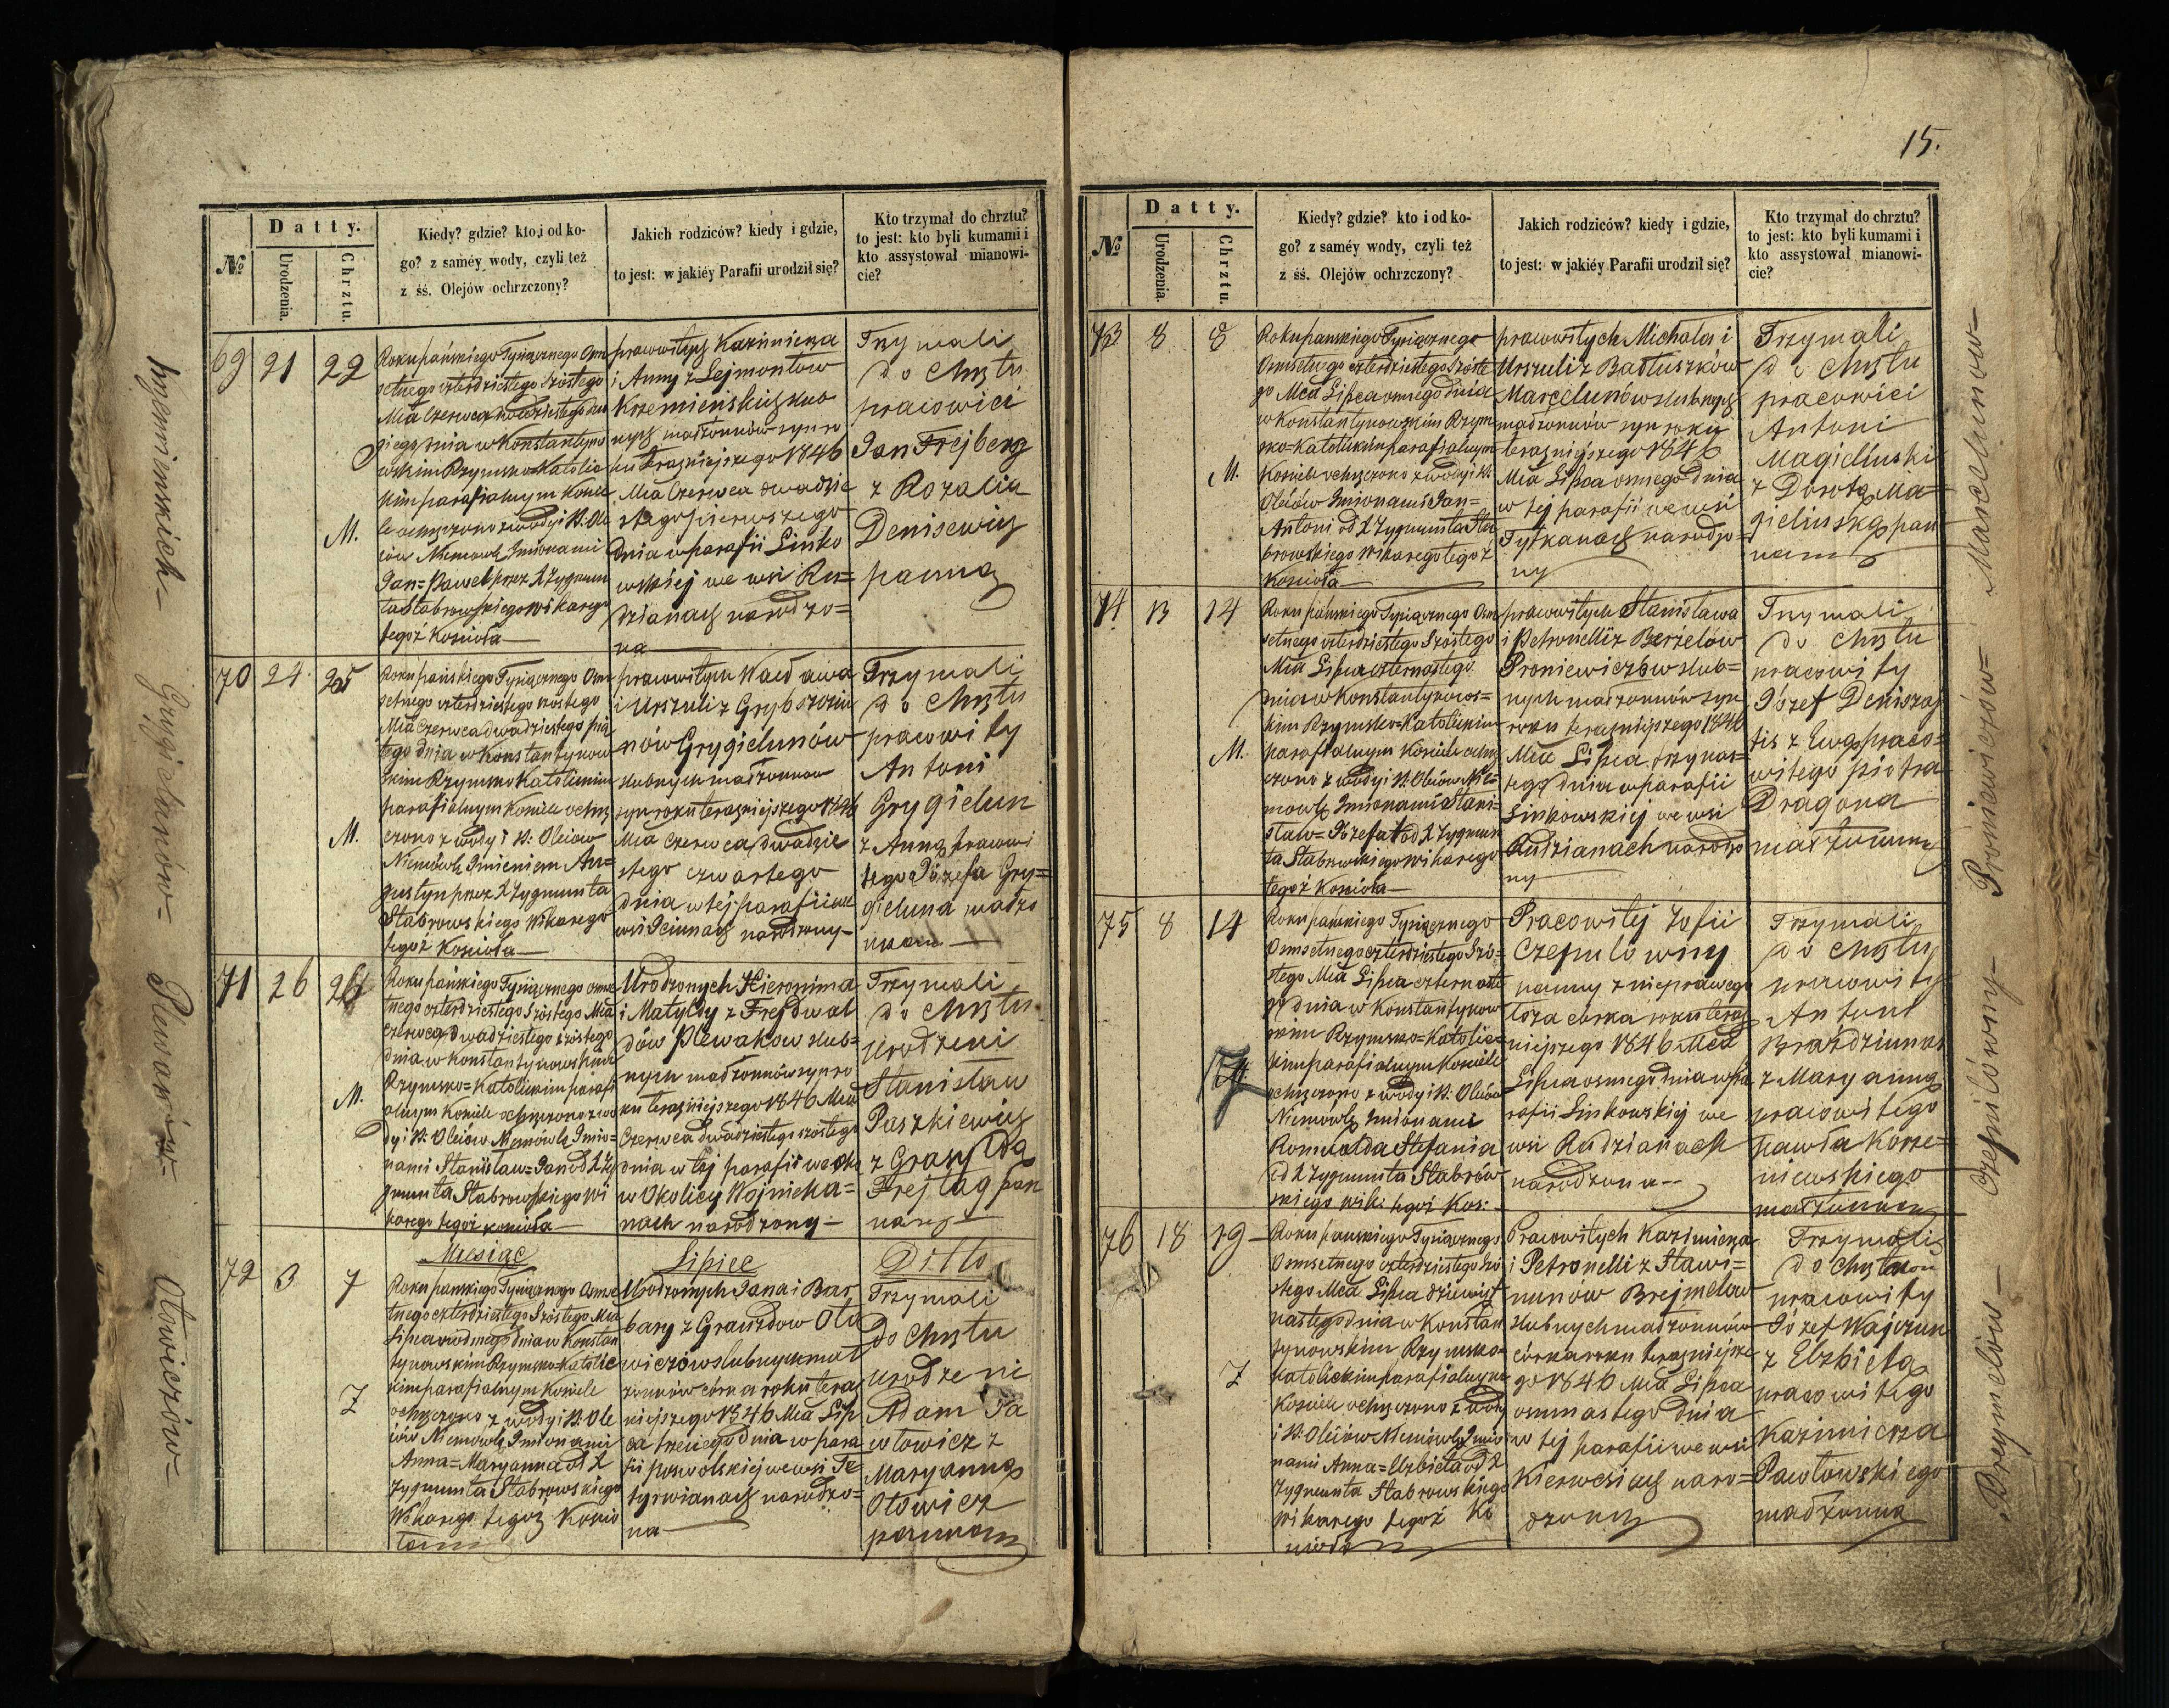 15.
№
Datty.
Urodzenia.
Chrztu.
Kiedy? gdzie? kto i od ko-
go? z saméy wody, czyli też
z śś. Olejów ochrzczony?
Jakich rodziców? kiedy i gdzie,
to jest: w jakiéy Parafii urodził się?
Kto trzymał do chrztu?
to jest: kto byli kumami i
kto assystował mianowi-
cie?
69 21 22
M.
Roku pańskiego Tysiącznego Osm
setnego czterdziestego szóstego
Mca Czerwca dwudziestego dru
giego dnia w Konstantyno
wskim Rzymsko-Katolic
kim parafialnym Koście
le ochrzczono z wody i ŚŚ. Ole
iów Niemowlę Imionami
Jan=Paweł przez X Zygmun
ta Stabrowskiego Wikarego
tegoż Kościoła
prawowitych Kazimierza
i Anny z Lejmontów
Krzemieńskich slub
nych małżonków syn ro
ku teraźniejszego 1846
Mca Czerwca dwudzie
stego pierwszego
dnia w parafii Linko
wskiej we wsi Ru=
dzianach narodzo=
na
Trzymali
do Chrztu
pracowici
Jan Frejberg
z Rozalią
Denisewicz
panną
70 24 25
M.
Roku pańskiego Tysiącznego Osm
setnego czterdziestego szóstego
Mca Czerwca dwadziestego pią
tego dnia w Konstantynow
skim Rzymsko Katolickim
parafialnym Kościele ochrz
czono z wody i ŚŚ. Oleiow
Niemowlę Imieniem Au=
gustyn przez X Zygmunta
Stabrowskiego Wikarego
tegoż Kościoła
pracowitych Wacława
i Urszuli z Grybszciu
nów Grygielunów
slubnych małżonkow
syn roku teraźniejszego 1846
Mca Czerwca dwadzie
stego czwartego
dnia w tej parafii we
wsi Pciunach narodzony
Trzymali
do Chrztu
pracowity
Antoni
Grygielun
z Anną pracowi
tego Józefa Gry=
gieluna małżo
nkom
71 26 26
M.
Roku pańskiego Tysiącznego osmse
tnego czterdziestego szóstego Mca
Czerwca dwadziestego szóstego
dnia w Konstantynowskim
Rzymsko=Katolickim parafi
alnym Kościele ochrzczono z wo
dy i ŚŚ. Oleiów Niemówlę Imio=
nami Stanisław=Jan od X Zy
gmunta Stabrowskiego Wi
karego tegoż Kościoła
Urodzonych Hieronima
i Matyldy z Frejdwal
dów Plewakow slub=
nych małżonków syn ro
ku teraźniejszego 1846 Mca
Czerwca dwadziestego szostego
dnia w tej parafii we dka
w Okolicy Wojnicka=
nach narodzony
Trzymali
do Chrztu
urodzeni
Stanisław
Paszkiewicz
z Grasyldą
Frejtag pan
ną
Miesiąc Lipiec Ditto
72 3 7
Z
Roku pańskiego Tysiącznego Osmse
tnego czterdziestego Szóstego Mca
Lipca siódmego dnia w Konstan
tynowskim Rzymsko=Katolic
kim parafialnym Kościele
ochrzczono z wody i ŚŚ. Ole
iów Niemowlę Imionami
Anna=Maryanna od X
Zygmunta Stabrowskiego
Wikarego tegoż Kościo
ła
Urodzonych Jana i Bar
bary z Grauzdow Oto
wiczów slubnych mał
żonków córka roku teraz
niejszego 1846 Mca Lip
ca trzeciego dnia w para
fii poswolskiej we wsi Te
tyrwianach narodzo=
na
Trzymali
do Chrztu
urodzeni
Adam Pa
włowicz z
Maryanną
Otowicz
panną
Krzemienskich
Grygielunów
Plewaków
Otowiczów
№
Datty.
Urodzenia.
Chrztu.
Kiedy? gdzie? kto i od ko-
go? z saméy wody, czyli też
z śś. Olejów ochrzczony?
Jakich rodziców? kiedy i gdzie,
to jest: w jakiéy Parafii urodził się?
Kto trzymał do chrztu?
to jest: kto byli kumami i
kto assystował mianowi-
cie?
73 8 8
M.
Roku pańskiego Tysiącznego
Osmsetnego czterdziestego szóste
go Mca Lipca osmego dnia
w Konstantynowskim Rzym
sko-Katolickim parafialnym
Kościele ochrzczono z wody i ŚŚ.
Oleiów Imionami Jan=
Antoni od X Zygmunta Sta
browskiego Wikarego tegoż
Kościoła
prawowitych Michała i
Urszuli z Bałtuszków
Marcelunów slubnych
małżonków syn roku
teraźniejszego 1846
Mca Lipca osmego dnia
w tej parafii we wsi
Tytkanach narodzo=
ny
Trzymali
do Chrztu
pracowici
Antoni
Magieliński
z Dorotą Ma=
gielinską pan
ną
74 13 14
M.
Roku pańskiego Tysiącznego Osm
setnego czterdziestego Szóstego
Mca Lipca czternastego
dnia w Konstantynows=
kim Rzymsko=Katolickim
parafialnym Kościele ochrz
czono z wody i ŚŚ. Oleiów Nie=
mowlę Imionami Stani=
sław=Józefat od X Zygmun
ta Stabrowskiego Wikarego
tegoż Kościoła
prawowitych Stanisława
i Petronelli z Berzelów
Proniewiczów slub=
nych małżonków syn
roku teraźniejszego 1846
Mca Lipca trzynas=
tego dnia w parafii
Linkowskiej we wsi
Rudzianach narodzo
ny
Trzymali
do Chrztu
pracowity
Józef Deniszaj
tis z Ewą praco=
witego piotra
Dragona
małżonką
75 8 14
Z
Roku pańskiego Tysiącznego
Osmsetnego czterdziestego Szó=
stego Mca Lipca czternaste
go dnia w Konstantynow
skim Rzymsko=Katolic=
kim parafialnym Kościele
ochrzczono z wody i ŚŚ. Oleiów
Niemowlę Imionami
Romualda Stefania
od X Zygmunta Stabrów
skiego Wik: tegoż Koś:
Pracowitej Zofii
Czepulowny
panny z nieprawego
łoża córka roku teraź
niejszego 1846 Mca
Lipca osmego dnia w pa
rafii Linkowskiej we
wsi Rudzianach
narodzona
Trzymali
do Chrztu
pracowity
Antoni
Braździunas
z Maryanną
pracowitego
Pawła Korze=
niewskiego
małżonką
76 18 19
Z
Roku pańskiego Tysiącznego
Osmsetnego czterdziestego Szó
stego Mca Lipca dziewięt
nastego dnia w Konstan
tynowskim Rzymsko=
Katolickim parafialnym
Kościele ochrzczono z wody
i ŚŚ. Oleiów Niemówlę Imio
nami Anna=Elzbieta od X
Zygmunta Stabrowskiego
Wikarego tegoż Ko
ścioła
Pracowitych Kazimierza
i Petronelli z Stawi=
nunów Brejmelow
slubnych małżonków
córka roku teraźniejsze
go 1846 Mca Lipca
osmnastego dnia
w tej parafii we wsi
Kierwesiach naro=
dzona
Trzymali
do Chrztu
pracowity
Józef Wajczun
z Elzbietą
pracowitego
Kazimierza
Pawłowskiego
małżonką
Marcelunow
Proniewiczów
Czepulówny
Breymelów